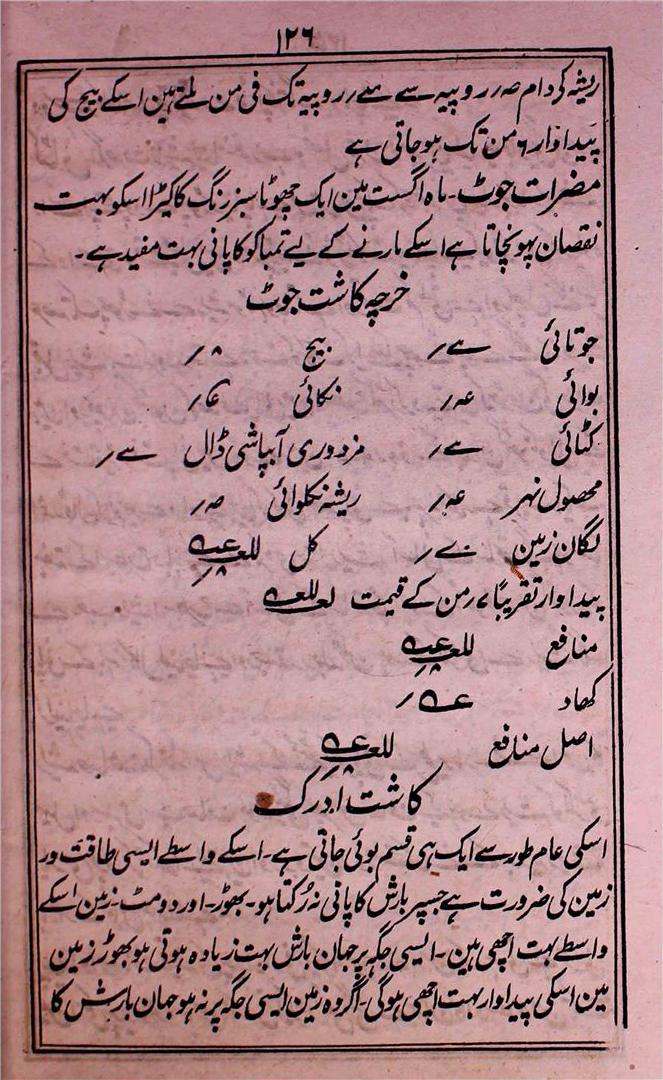 ۱۲۶
ریشہ کی دام صہ ؍ روپیہ سے ؍ روپیہ تک فی من ملتے ہین اسکے بیج کی
پیداوار ۶ من تک ہو جاتی ہے
مضرات جوٹ ۔ ماہ اگست مین ایک چھوٹا سبز رنگ کا کیڑا اسکو بہت
نقصان پہونچاتا ہے اسکے مارنے کے لیے تمباکو کا پانی بہت مفید ہے ۔
خرچہ کاشت جوٹ
جوتائی بیج ۸؍
بوائی عہ؍ نکائی
کٹائی مزدوری آبپاشی ڈال
محصول نہر عہ؍ ریشہ نکلوائی صہ؍
لگان زمین کل
پیداوار تقریباً ۷ ؍من کے قیمت
منافع
کھاد
اصل منافع
کاشت ادرک
اسکی عام طور سے ایک ہی قسم بوئی جاتی ہے ۔ اسکے واسطے ایسی طاقت ور
زمین کی ضرورت ہے جسپر بارش کا پانی نہ رُکتا ہو ۔ بھوڑ ۔ اور دومٹ ۔ زمین اسکے
واسطے بہت اچھی ہین ۔ ایسی جگہ پر جہان بارش بہت زیادہ ہوتی ہو بھوڑ زمین
مین اسکی پیداوار بہت اچھی ہوگی ۔ اگر وہ زمین ایسی جگہ پر نہ ہو جہان بارش کا